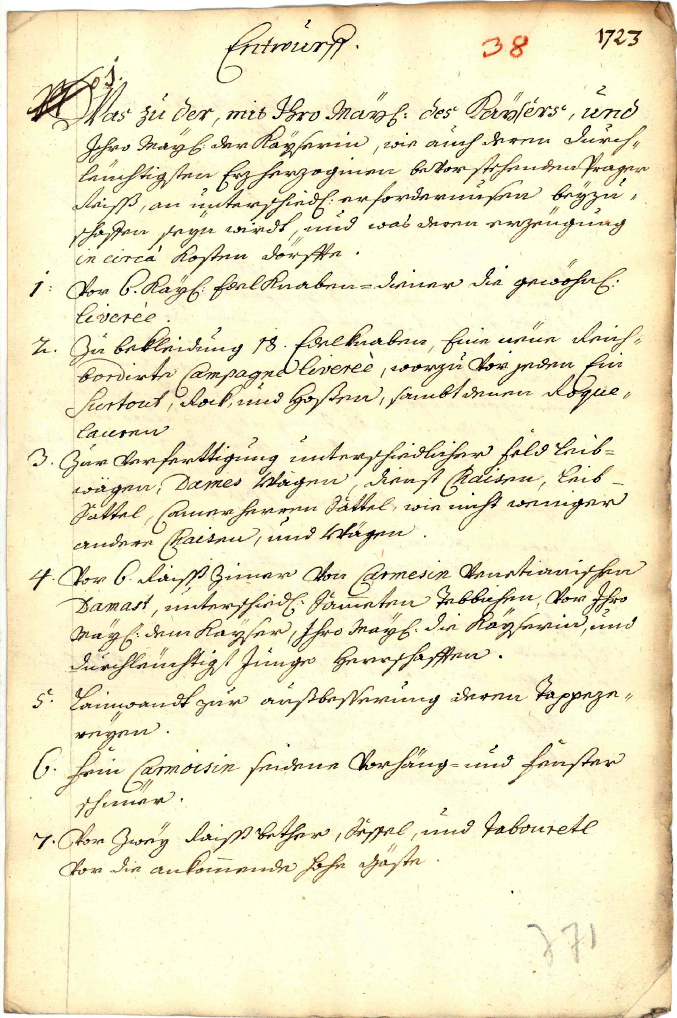 Entwurff.
38
1723
No 1.
Was zu der, mit Ihro Mayl: des Kaysers, und
Ihro Mayl: der Kayserin, wie auch deren Durch-
leüchtigsten Erzherzoginen bevorstehenden Prager
Raiß, an unterschiedl: erfordernussen beyzu-
schaffen seyn wirdt, und was deren erzeügung
in circà kosten dörffte.
1: Vor 6. Kayl: Edl Knaben=diener die gewöhnl:
liverèe.
2. Zu bekleidung 18. Edelknaben, Eine neüe Reich-
bordirte Campagne liverèe, worzu vor jeden Ein
Surtout, Rock, und Hosen, sambt denen Roque-
lauren
3. Zur verferttigung unterschiedlicher feld Leib=
wägen, Dames Wägen, dienst Chaisen, Leib-
Sättel, Camerherren Sättel, wie nicht weniger
andere Chaisen, und Wägen.
4. Vor 6. Raiß Zimer von Carmesin Venetianischen
Damast, unterschiedl: Sameten Tebbichen, vor Ihro
Mayl: dem Kayser, Ihro Mayl: die Kayserin, und
durchleüchtigst Junge Herrschafften.
5. Leinwandt zur außbesserung deren Tappeze-
reyen.
6. fein Carmoisin seidene Vorhäng= und fenster
schnüer.
7. Vor Zwey Raiß bether, Sessel, und Tabouretl
vor die ankommende hohe Gäste.
371